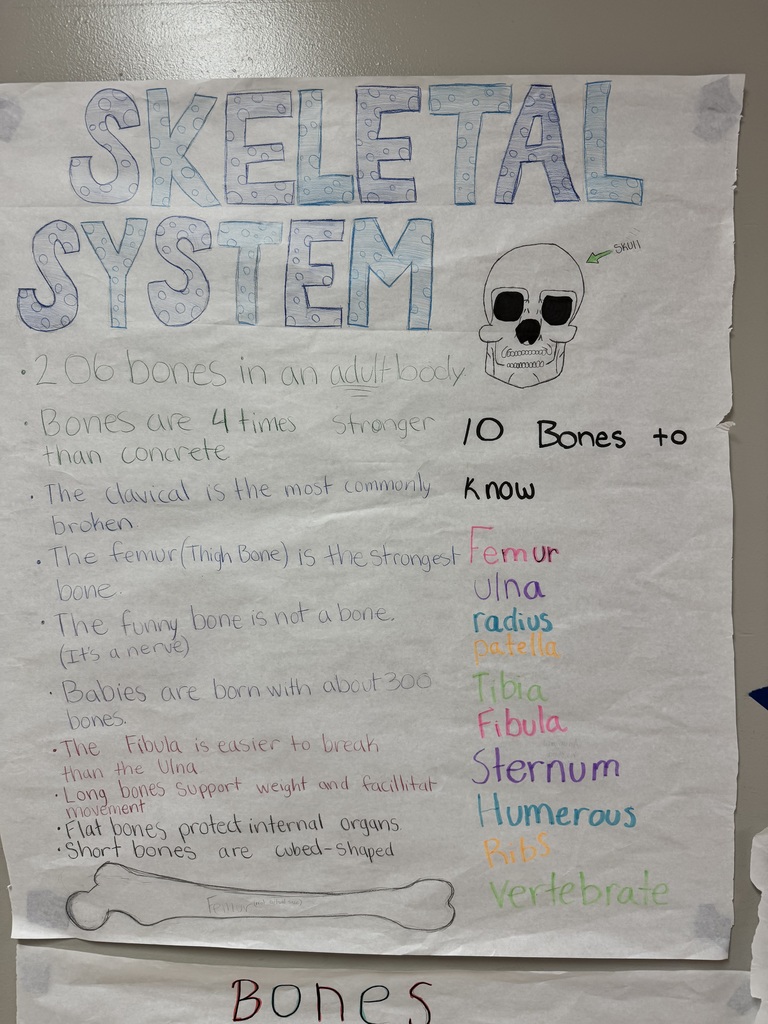 SKELETAL
SYSTEM
SKull
• 206 bones in an adult body
• Bones are 4 times stronger
than concrete
• The clavical is the most commonly
broken.
• The femur (Thigh Bone) is the strongest
bone.
• The funny bone is not a bone.
(It's a nerve)
• Babies are born with about 300
bones.
• The Fibula is easier to break
than the Ulna
• Long bones support weight and facillitat
movement
• Flat bones protect internal organs.
• Short bones are cubed-shaped
Femur
10 Bones to
Know
Femur
Ulna
radius
patella
Tibia
Fibula
Sternum
Humerous
Ribs
vertebrate
Bones